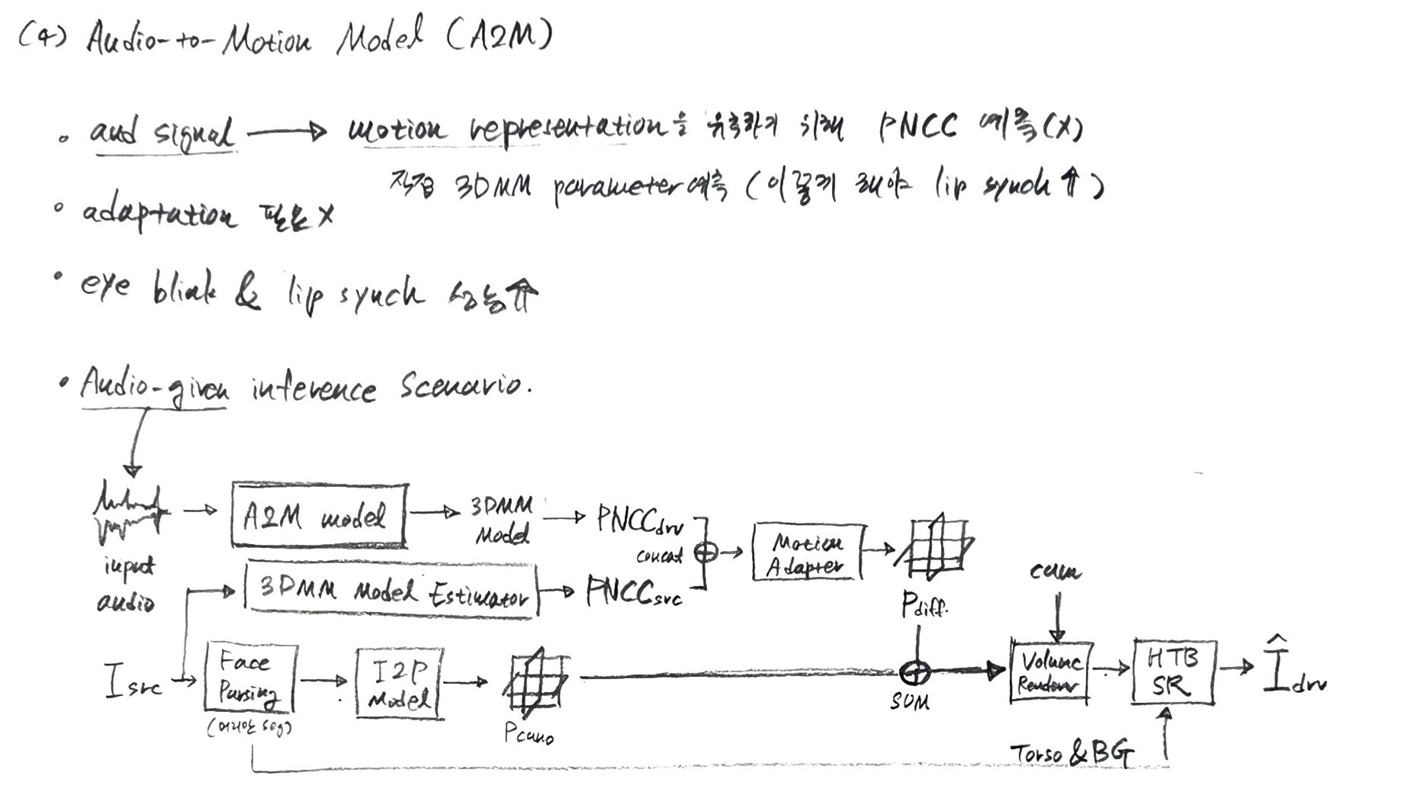 (4) Audio-to-Motion Model (A2M)
• aud signal → motion representation을 유추하기 위해 PNCC 예측(X)
직접 3DMM parameter 예측 (이렇게 해야 lip synch ↑)
• adaptation 필요 X
• eye blink & lip synch 성능⇑
• Audio-given inference Scenario.
input audio
A2M model
3DMM Model
PNCCdrv
concat
Motion Adapter
3DMM Model Estimator
PNCCsrc
Pdiff.
cam
Isrc
Face Parsing
(머리만 seg)
I2P Model
Pcano
SUM
Volume Renderer
HTB SR
Îdrv
Torso & BG